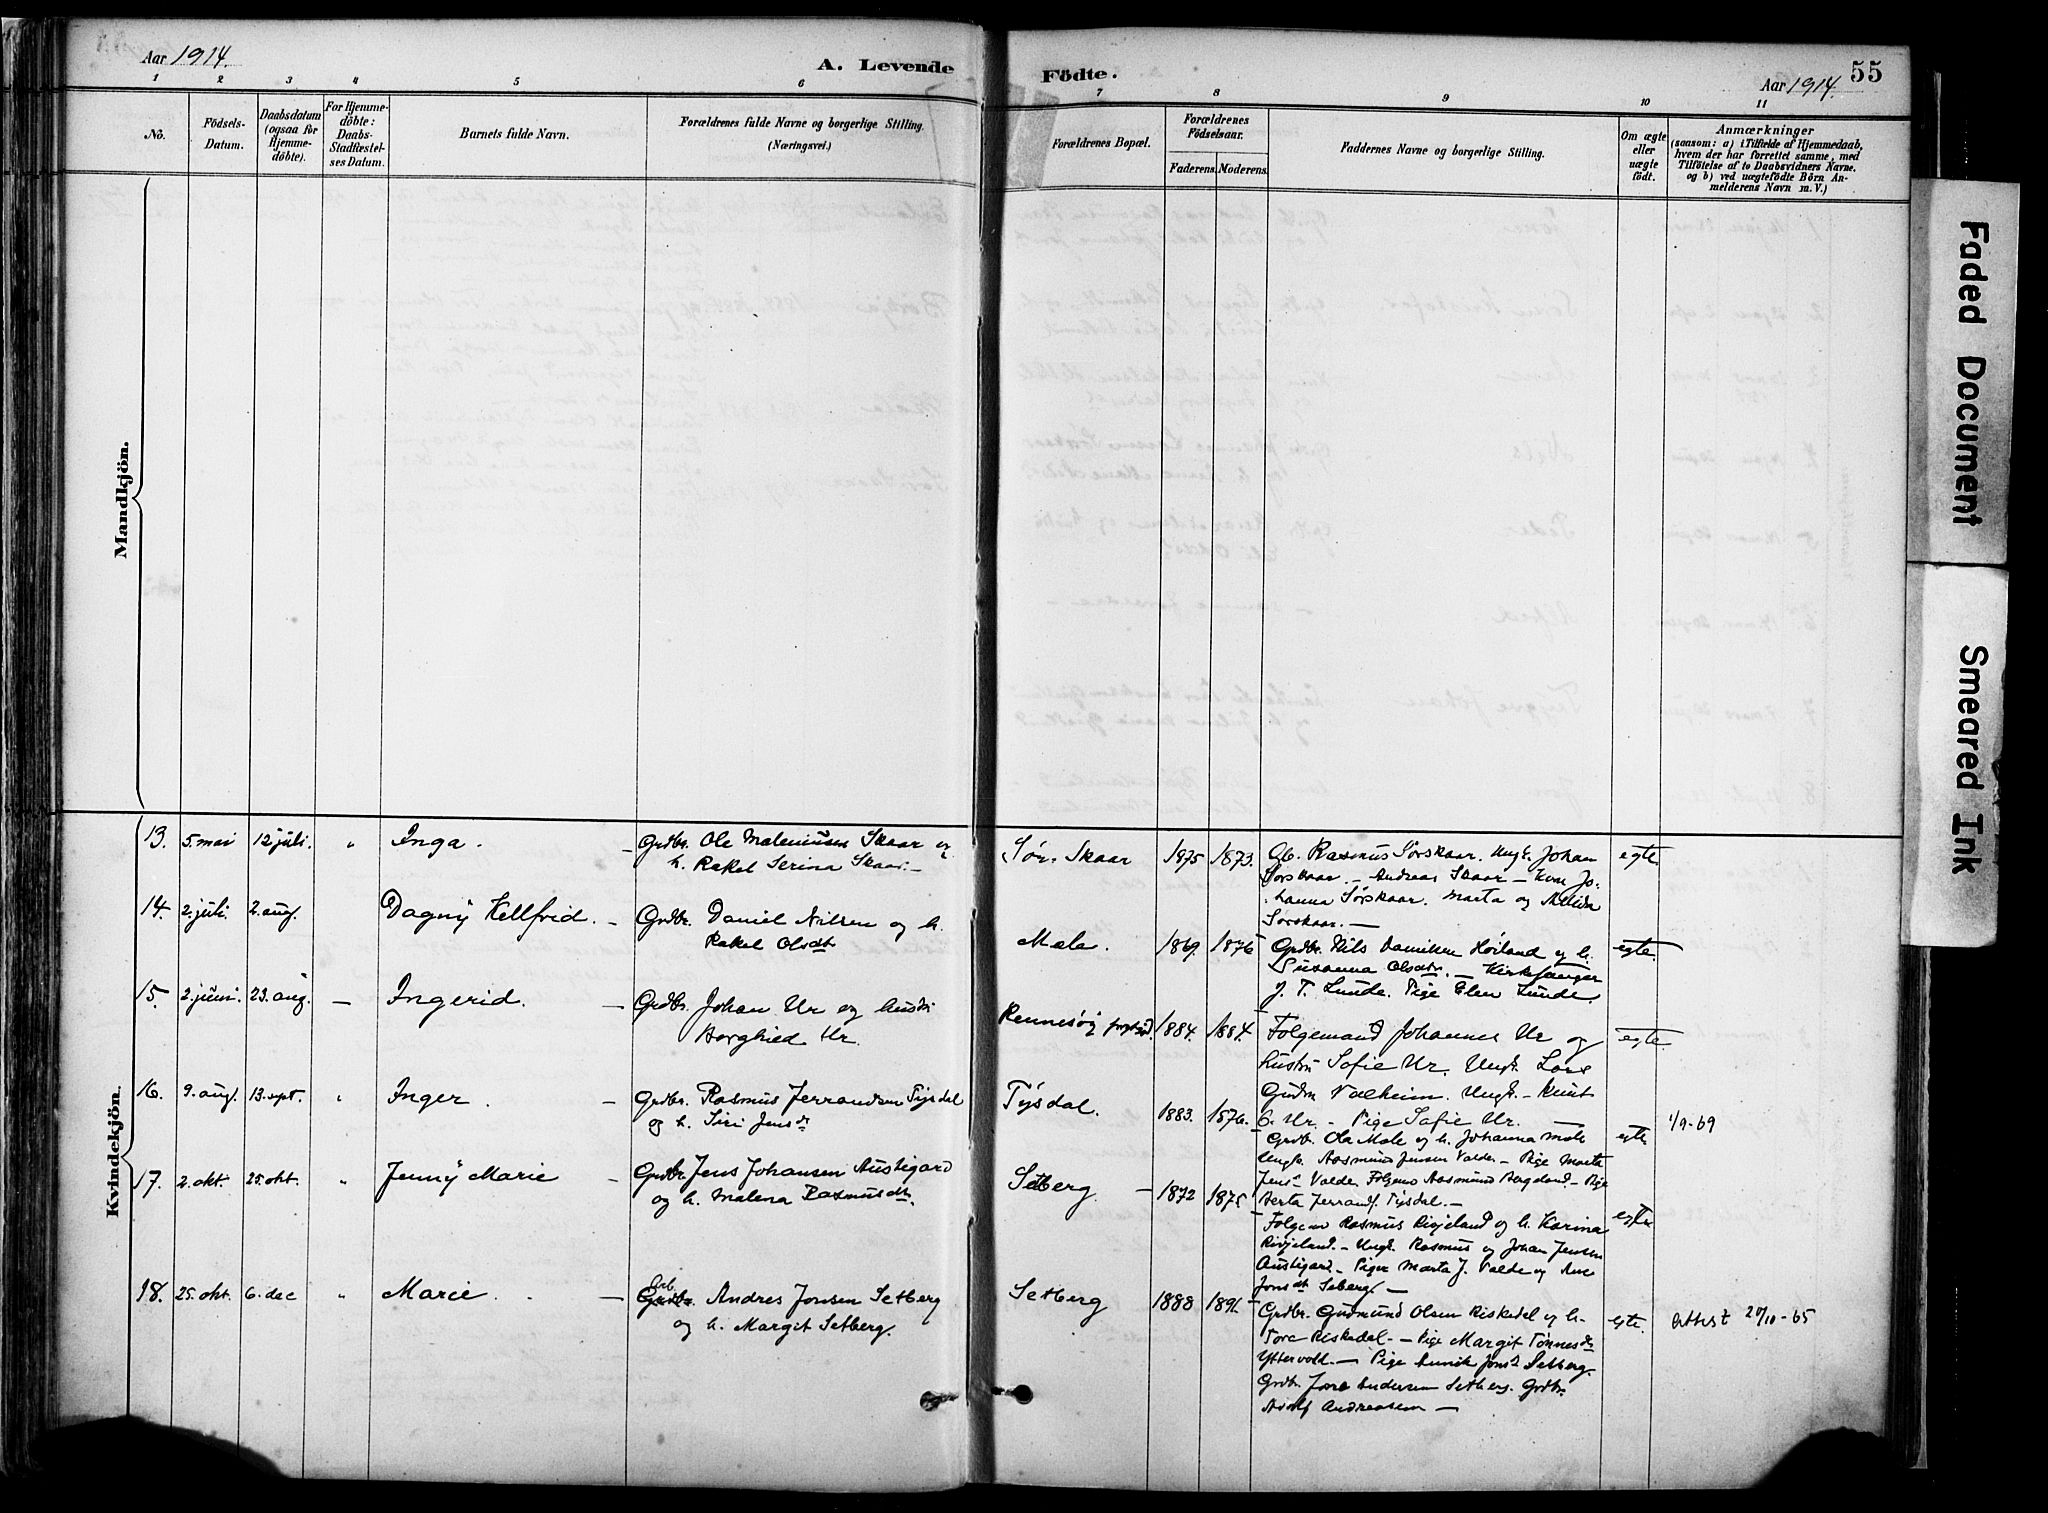 Aar 1914.
A. Levende
Födte.
Aar 1914.
55
1 2 3 4 5 6 7 8 9 10 11
No.
Födsels-Datum.
Daabsdatum (ogsaa for Hjemmedöbte).
For Hjemmedöbte: Daabs-Stadfæstelses Datum.
Barnets fulde Navn.
Forældrenes fulde Navne og borgerlige Stilling.
(Næringsvei.)
Forældrenes Bopæl.
Forældrenes Födselsaar.
Faderens. Moderens.
Faddernes Navne og borgerlige Stilling.
Om ægte eller uægte födt.
Anmærkninger
(saasom: a) i Tilfælde af Hjemmedaab,
hvem der har forrettet samme, med
Tilföielse af to Daabsvidners Navne.
og b) ved uægtefödte Börn An-
melderens Navn m. V.)
Mandkjön.
Kvindekjön.
13. 5. mai 12 juli. " Inga. – Grdbr. Ole Maleniusen Skaar og
h. Rakel Serina Skaar. –
Sør-Skaar 1875 1873.
Rasmus Sørskaar. Ungk. Johan
Sørskaar. – Andreas Skaar – Kone Jo-
hanna Sørskaar. Marta og
Sørskaar. –
egte
14. 2. juli. 2. aug. Dagny Kellfrid. – Grdbr. Daniel Nilsen og h.
Rakel Olsdt
Mele. 1869. 1876
Grdbr. Nils Høiland og h.
Susanna Olsdtr. – Kirkesanger
J. T. Lunde. Pige Elen Lunde.
egte.
15. 2. juni. 23. aug. – Ingerid. – Grdbr. Johan Ur og hustr.
Borghied Ur.
Rennesøy 1884. 1884.
Folgemand Johannes Ur og
hustru Sofie Ur. Ungk. Lars
Valheim. Ungk. – Knut
Ur. – Pige Sofie Ur. –
egte.
16. 9. aug. 13. sept. " Inger. – Grdbr. Rasmus Jerrandsen Tysdal
og h. Siri Jensdr
Tysdal. 1883. 1876.
Grdb. Ola Mele og h. Johanna Mele
Ungk. Aasmund Jensen Valde – Pige Marta
Jens Valde. Folgem Aasmund – Pige
Berta Jerrandsd Tysdal. –
egte
1/9-69
17. 2. okt. 25. okt. " Jenny Marie – Grdbr. Jens Johansen Austigard
og h. Malena Rasmusdr.
Setberg. – 1872 1875
Folgem Rasmus Riveland og h. Karina
Riveland. – Ungk. Rasmus og Johan Jensen
Austigard. – Piger Marta J. Valde og Ane
Jonsdt Seberg. –
egte
18. 25. okt. 6. dec " Marie. – Andres Jonsen Setberg
og h. Margit Setberg.
Setberg 1888 1891.
Grdbr. Gudmund Olsen Riskedal og h.
Tore Riskedal. – Pige Margit Tønnesdr
Yttervold. – Pige Jonsd Setberg.
Grdbr. Jone Andersen Setberg. Grdbr.
Adolf Andreassen –
egte.
attest 27/10-65
Faded Document
Smeared Ink